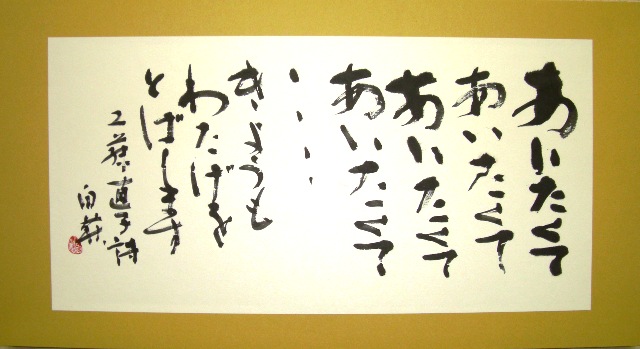 あいたくて
あいたくて
あいたくて
あいたくて
・・・
きょうも
わたげを
とばします
工藤直子詩